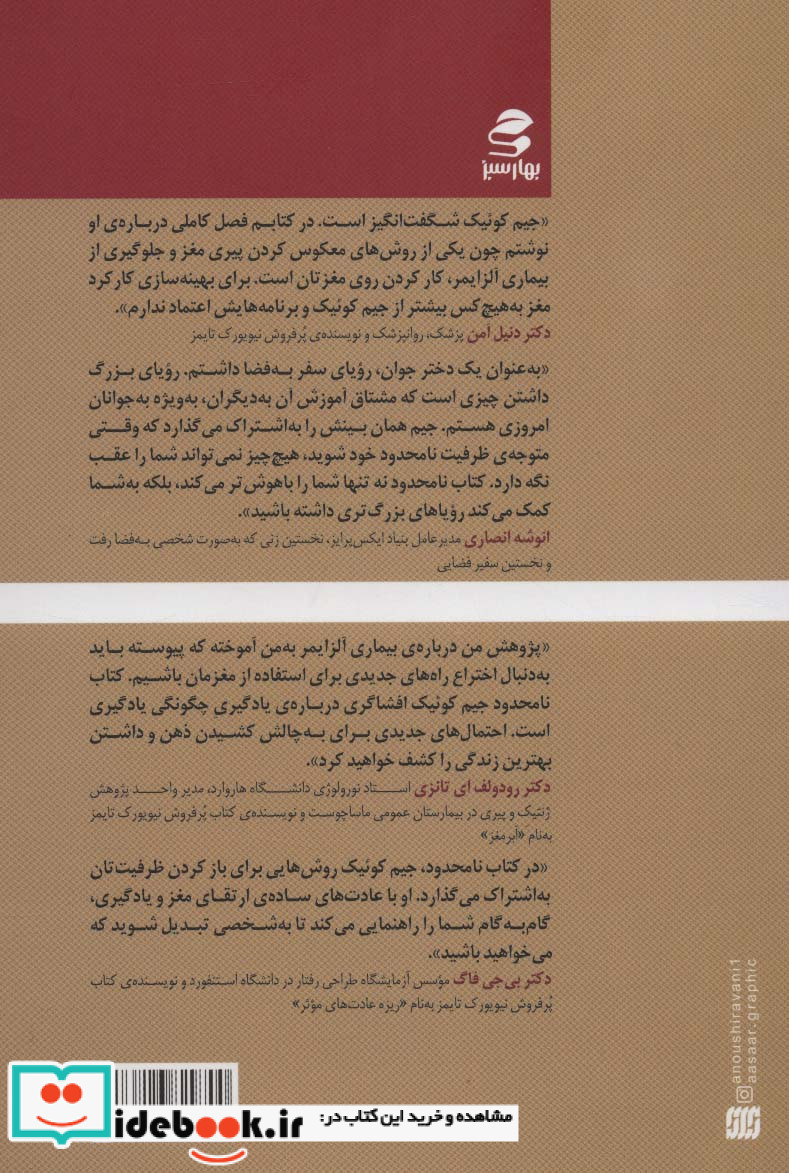 بهار سبز
«جیم کوئیک شگفت‌انگیز است. در کتابم فصل کاملی درباره‌ی او
نوشتم چون یکی از روش‌های معکوس کردن پیری مغز و جلوگیری از
بیماری آلزایمر، کار کردن روی مغزتان است. برای بهینه‌سازی کارکرد
مغز به‌هیچ‌کس بیشتر از جیم کوئیک و برنامه‌هایش اعتماد ندارم».
دکتر دنیل آمن پزشک، روانپزشک و نویسنده‌ی پُرفروش نیویورک تایمز
«به‌عنوان یک دختر جوان، رؤیای سفر به‌فضا داشتم. رؤیای بزرگ
داشتن چیزی است که مشتاق آموزش آن به‌دیگران، به‌ویژه به‌جوانان
امروزی هستم. جیم همان بینش را به‌اشتراک می‌گذارد که وقتی
متوجه‌ی ظرفیت نامحدود خود شوید، هیچ‌چیز نمی‌تواند شما را عقب
نگه دارد. کتاب نامحدود نه تنها شما را باهوش‌تر می‌کند، بلکه به‌شما
کمک می‌کند رؤیاهای بزرگ‌تری داشته باشید».
انوشه انصاری مدیرعامل بنیاد ایکس‌پرایز، نخستین زنی که به‌صورت شخصی به‌فضا رفت
و نخستین سفیر فضایی
«پژوهش من درباره‌ی بیماری آلزایمر به‌من آموخته که پیوسته باید
به‌دنبال اختراع راه‌های جدیدی برای استفاده از مغزمان باشیم. کتاب
نامحدود جیم کوئیک افشاگری درباره‌ی یادگیری چگونگی یادگیری
است. احتمال‌های جدیدی برای به‌چالش کشیدن ذهن و داشتن
بهترین زندگی را کشف خواهید کرد».
دکتر رودولف ای تانزی استاد نورولوژی دانشگاه هاروارد، مدیر واحد پژوهش
ژنتیک و پیری در بیمارستان عمومی ماساچوست و نویسنده‌ی کتاب پُرفروش نیویورک تایمز
به‌نام «اَبَرمغز»
«در کتاب نامحدود، جیم کوئیک روش‌هایی برای باز کردن ظرفیت‌تان
به‌اشتراک می‌گذارد. او با عادت‌های ساده‌ی ارتقای مغز و یادگیری،
گام‌به‌گام شما را راهنمایی می‌کند تا به‌شخصی تبدیل شوید که
می‌خواهید باشید».
دکتر بی‌جی فاگ مؤسس آزمایشگاه طراحی رفتار در دانشگاه استنفورد و نویسنده‌ی کتاب
پُرفروش نیویورک تایمز به‌نام «ریزه عادت‌های مؤثر»
anoushiravani1
aasaar.graphic
مشاهده و خرید این کتاب در:
idebook.ir